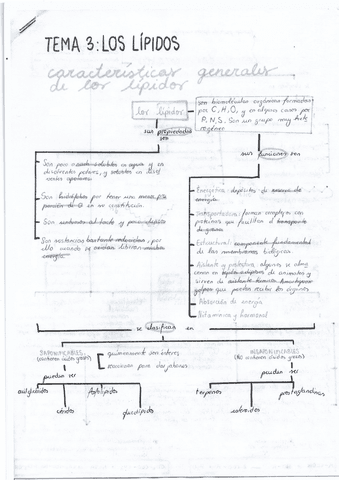 TEMA 3: LOS LÍPIDOS
características generales
de los lípidos
los lípidos
son biomoléculas orgánicas formadas
por C, H, O, y en algunos casos por
P, N, S. Son un grupo muy
sus propiedades
son
sus funciones son
Son poco solubles en agua y en
disolventes polares, y solubles en
por tener una
en su
Son untuosos al tacto y
Son sustancias bastante reducidas, por
ello cuando se oxidan liberan mucha
energía
Energética: depósitos de reserva de
energía
Transportadora: forman complejos con
proteínas que facilitan el transporte
Estructural: componente fundamental
de las membranas biológicas
Aislante y protectora: algunos se
en tejidos de animales y
sirven de aislante térmico
golpes que puedan recibir los órganos
de energía
Vitamínica y hormonal
se clasifican en
SAPONIFICABLES
(contienen ácidos grasos)
químicamente son ésteres
para dar jabones
INSAPONIFICABLES
(No contienen ácidos grasos)
pueden ser
pueden ser
acilglicéridos
céridos
fosfolípidos
glucolípidos
terpenos
esteroides
prostaglandinas